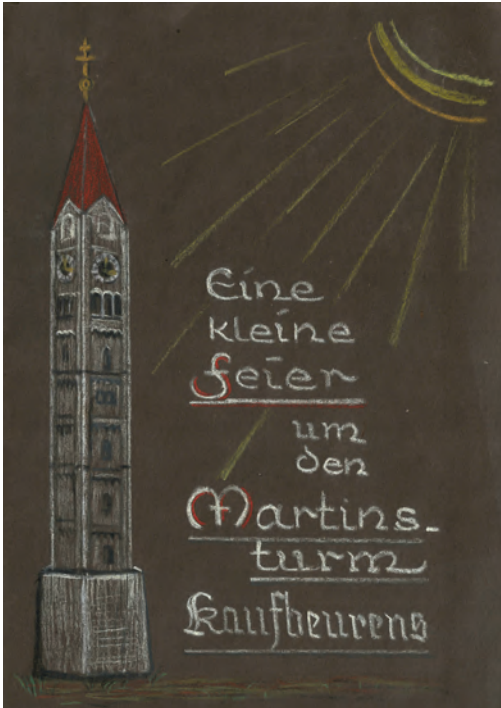 Eine
kleine
Feier
um
den
Martins-
turm
Kaufbeurens